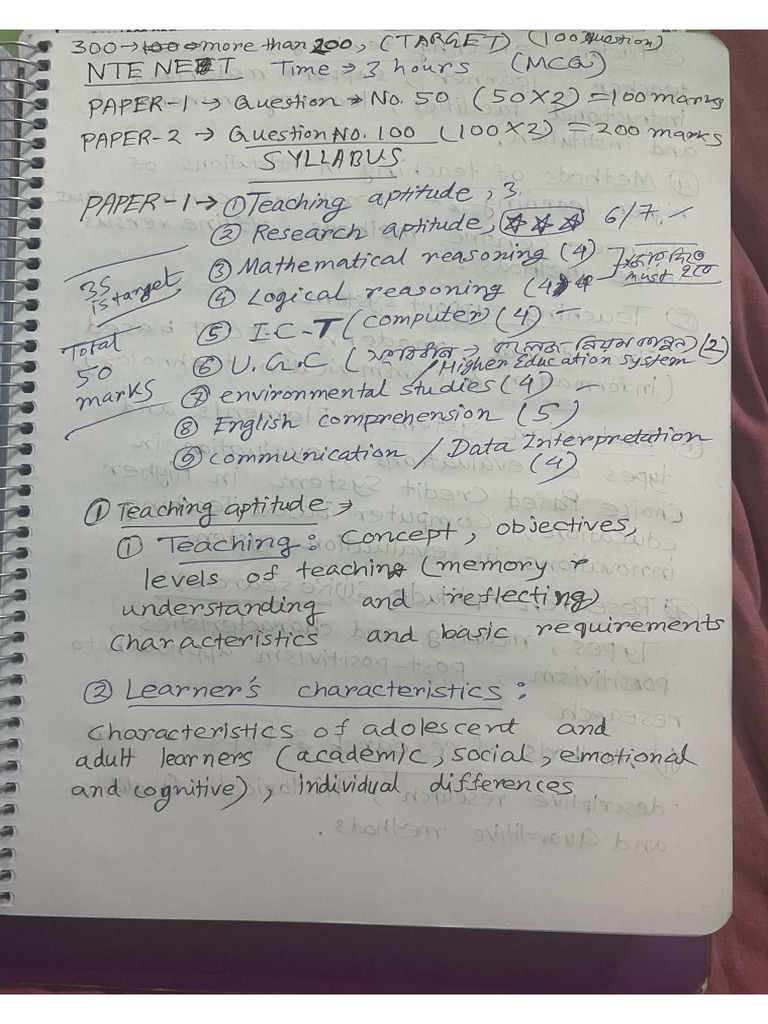 300 → more than 200, (TARGET) (100 question)
NTE NET Time → 3 hours (MCQ)
PAPER-1 → Question → No. 50 (50×2) = 100 marks
PAPER-2 → Question No. 100 (100×2) = 200 marks
SYLLABUS
PAPER-1 → ① Teaching aptitude, 3
② Research aptitude, ☆☆☆ 6/7
③ Mathematical reasoning (4)
④ Logical reasoning (4) must
35 is target
⑤ I.C-T (computer) (4)
⑥ U.G.C (কলেজ নিয়ম কানুন) (2)
/ Higher Education system
Total 50 marks
⑦ environmental studies (4)
⑧ English comprehension (5)
⑨ communication / Data Interpretation
(4)
① Teaching aptitude →
① Teaching: concept, objectives,
levels of teaching (memory
understanding and reflecting)
characteristics and basic requirements
② Learner's characteristics:
Characteristics of adolescent and
adult learners (academic, social, emotional
and cognitive), individual differences